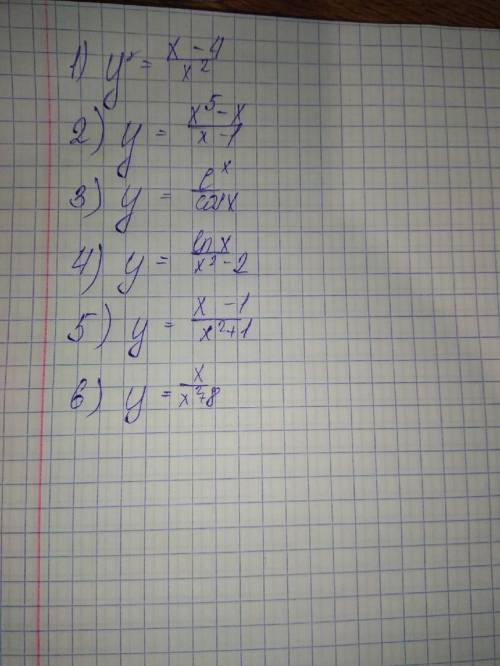 1) y = x - 4 / x²
2) y = x⁵ - x / x - 1
3) y = eˣ / cos x
4) y = ln x / x² - 2
5) y = x - 1 / x² + 1
6) y = x / x² + 8